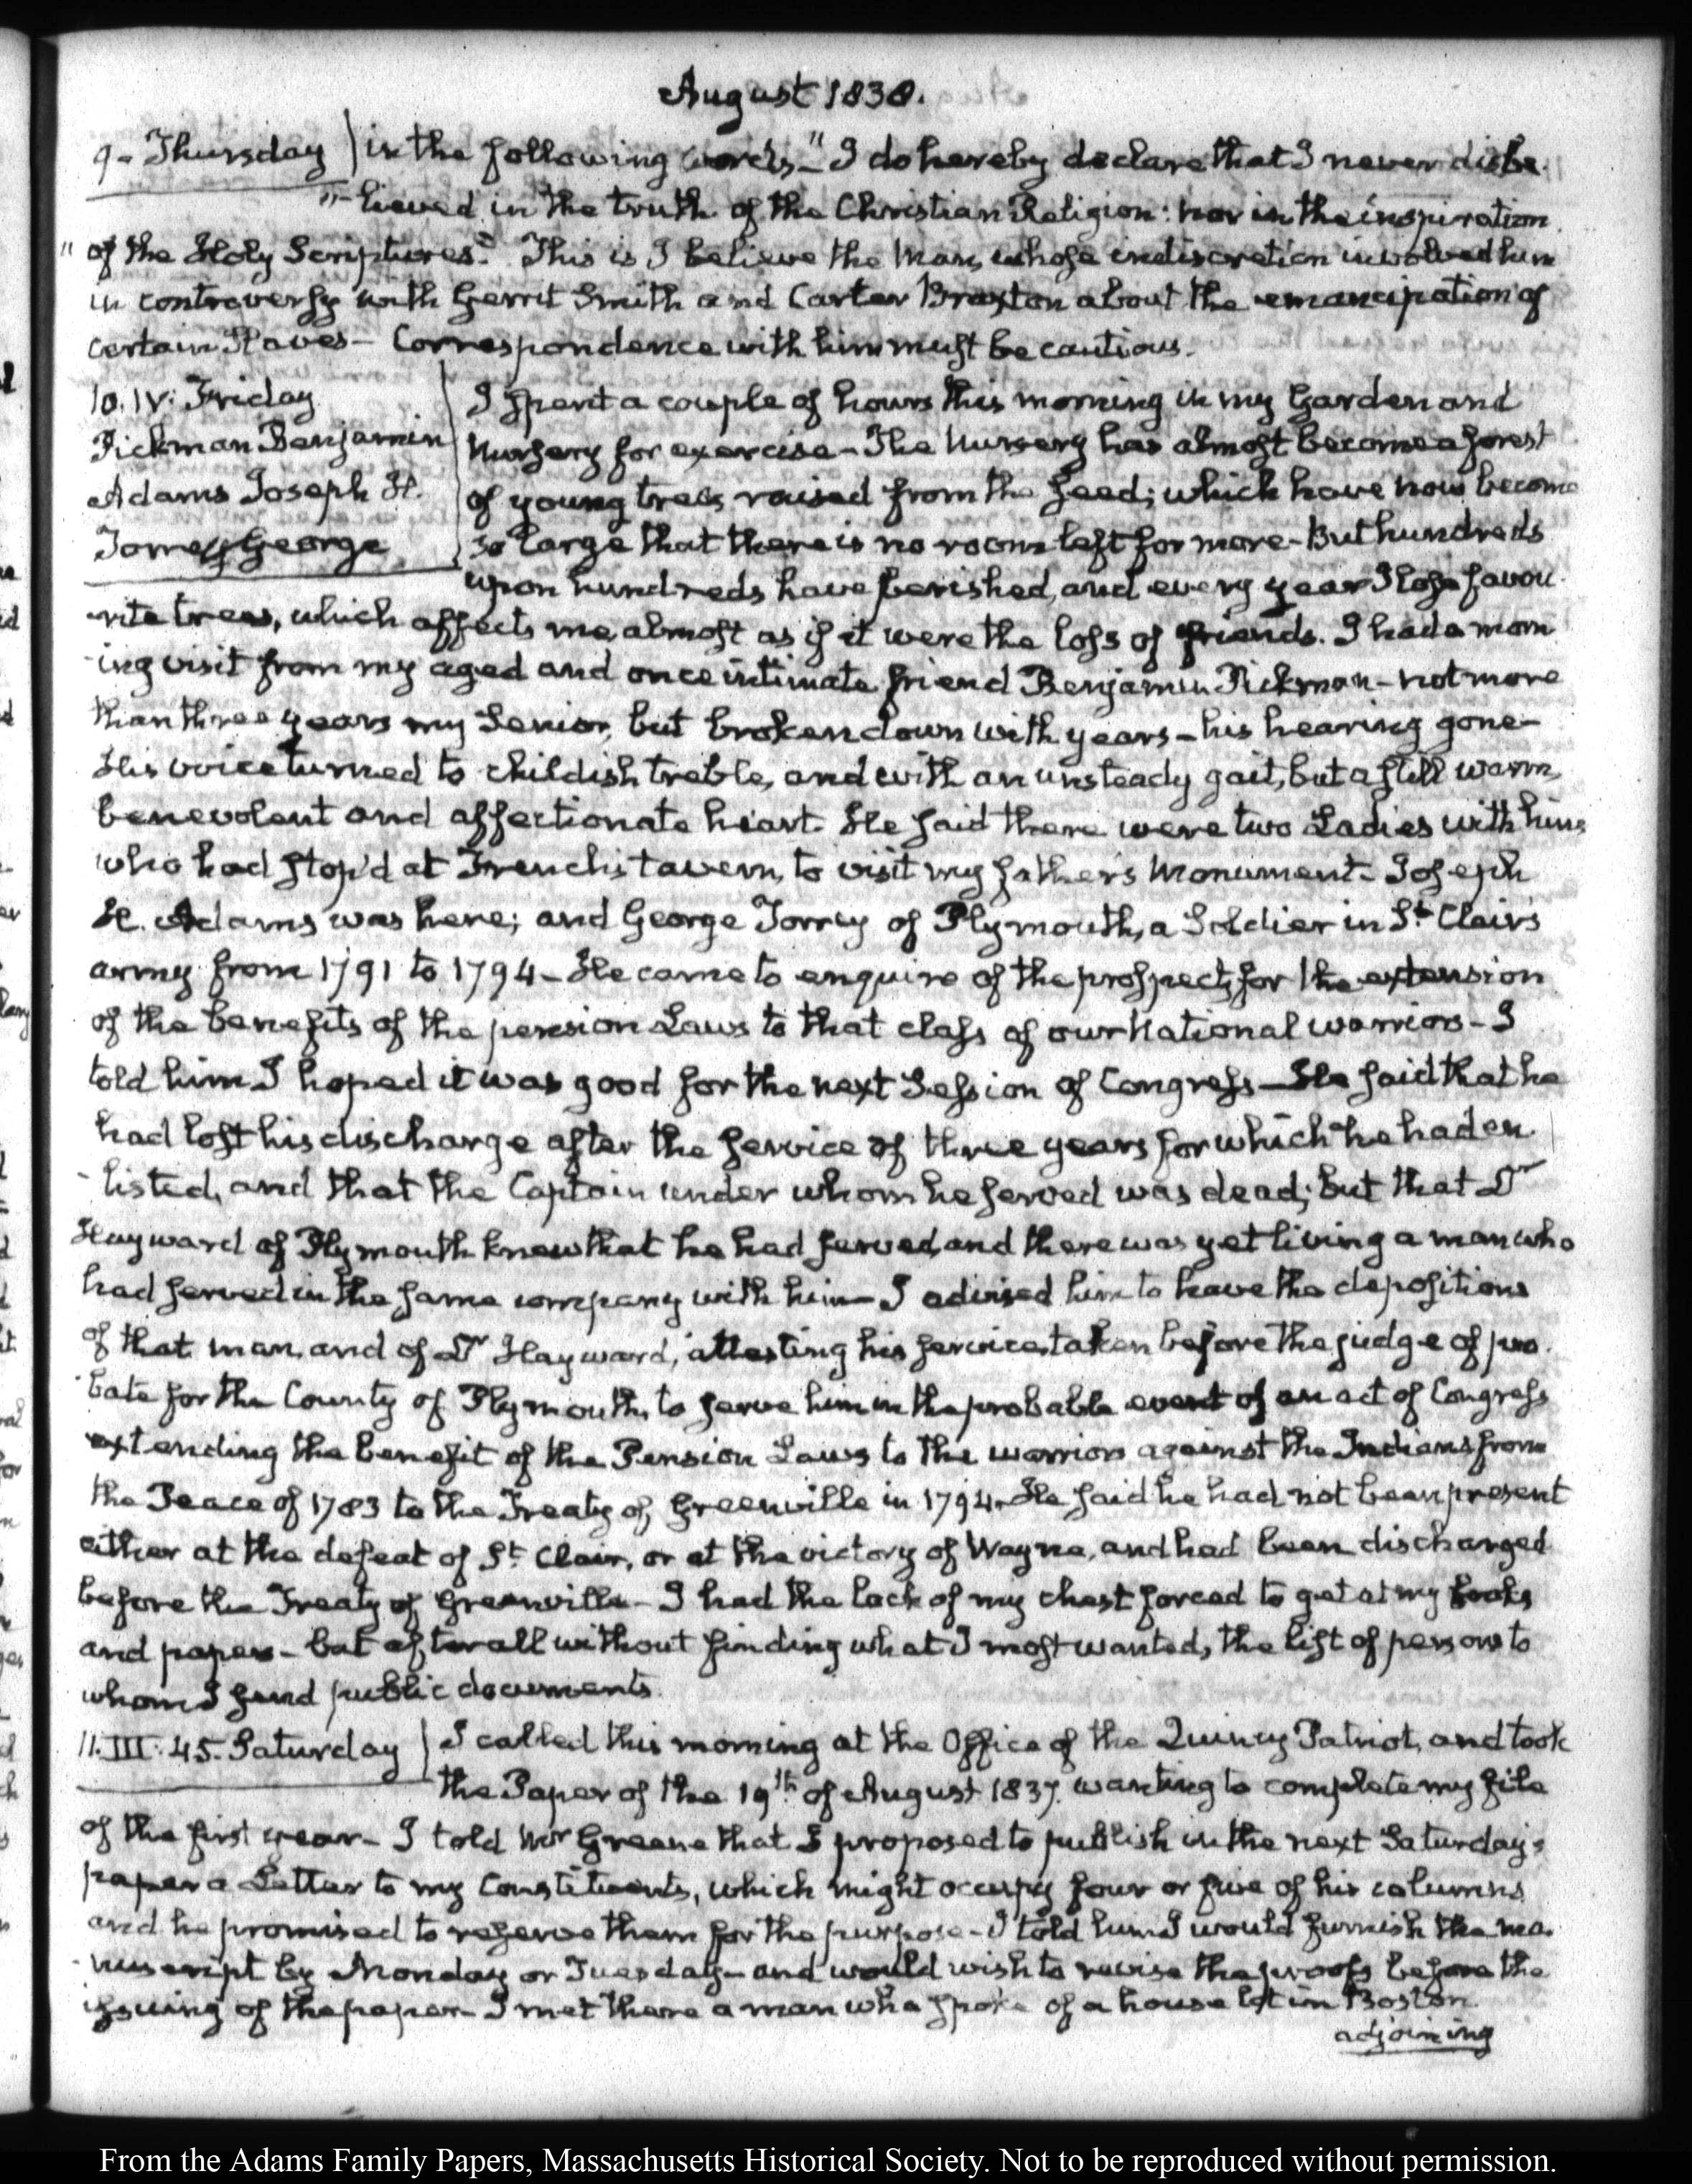 August 1838.
9. Thursday in the following words, "I do hereby declare that I never disbe-
"-lieved in the truth of the Christian Religion: nor in the inspiration
"of the Holy Scriptures." This is I believe the Man, whose indiscretion involved him
in controversy with Gerrit Smith and Carter Braxton about the emancipation of
certain Slaves - Correspondence with him must be cautious.
10. IV. Friday
Pickman Benjamin
Adams Joseph H.
Torrey George
I spent a couple of hours this morning in my Garden and
Nursery for exercise - The Nursery has almost become a forest
of young trees raised from the seed; which have now become
so large that there is no room left for more - But hundreds
upon hundreds have perished, and every year I lose favou-
-rite trees, which affects me almost as if it were the loss of friends. I had a morn
-ing visit from my aged and once intimate friend Benjamin Pickman - not more
than three years my Senior, but broken down with years - his hearing gone -
His voice turned to childish treble, and with an unsteady gait, but a still warm,
benevolent and affectionate heart. He said there were two Ladies with him
who had stop'd at French's tavern, to visit my father's Monument - Joseph
H. Adams was here; and George Torrey of Plymouth, a Soldier in St. Clair's
army from 1791 to 1794 - He came to enquire of the prospects for the extension
of the benefits of the pension Laws to that class of our National warriors - I
told him I hoped it was good for the next Session of Congress - He said that he
had lost his discharge after the service of three years for which he had en-
-listed, and that the Captain under whom he served was dead; but that Dr
Hayward of Plymouth knew that he had served, and there was yet living a man who
had served in the same company with him - I advised him to have the depositions
of that man, and of Dr Hayward, attesting his service, taken before the judge of pro-
-bate for the County of Plymouth, to serve him in the probable event of an act of Congress
extending the benefit of the Pension Laws to the warriors against the Indians from
the Peace of 1783 to the Treaty of Greenville in 1794. He said he had not been present
either at the defeat of St. Clair, or at the victory of Wayne, and had been discharged
before the Treaty of Greenville - I had the lock of my chest forced to get at my books
and papers - but after all without finding what I most wanted, the list of persons to
whom I send public documents.
11. III. 45. Saturday I called this morning at the Office of the Quincy Patriot, and took
the Paper of the 19th of August 1837. wanting to complete my file
of the first year - I told Mr Greene that I proposed to publish in the next Saturday's
paper a Letter to my Constituents, which might occupy four or five of his columns
and he promised to reserve them for the purpose - I told him I would furnish the ma-
-nuscript by Monday or Tuesday - and would wish to revise the proofs before the
issuing of the paper - I met there a man who spoke of a house lot in Boston
adjoining
From the Adams Family Papers, Massachusetts Historical Society. Not to be reproduced without permission.